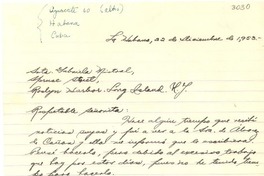 Aguacate 20 (altos)
Habana
Cuba
3030
La Habana, 22 de Diciembre de 1953.
Srta. Gabriela Mistral,
Spruce Street,
Roslyn Harbor Long Island N.Y.
Respetable señorita:
Hace algún tiempo que recibí
noticias suyas y fui a ver a la Sra. de Alonso
de Casas y ella me informó que le escribiera.
Pensé hacerlo, pero debido al excesivo trabajo
que hay por estos días, pues no he tenido tiem-
po para hacerlo.